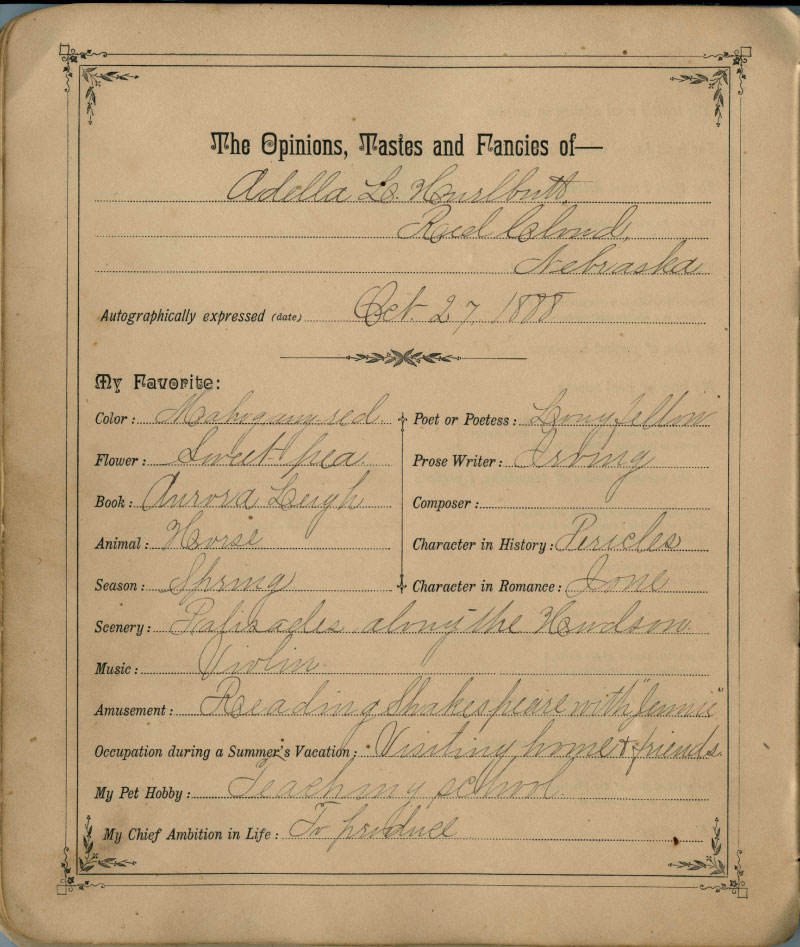 The Opinions, Tastes and Fancies of—
Adella L. Hurlbutt,
Red Cloud,
Nebraska
Autographically expressed (date) Oct 27, 1888
My Favorite:
Color: Mahogany red
Flower: Sweet pea.
Book: Aurora Leigh
Animal: Horse
Season: Spring
Poet or Poetess: Longfellow
Prose Writer: Irving
Composer:
Character in History: Pericles
Character in Romance: Ione
Scenery: Palisades along the Hudson.
Music: Violin.
Amusement: Reading Shakespeare with "Jennie"
Occupation during a Summer's Vacation: Visiting home & friends.
My Pet Hobby: Teaching school.
My Chief Ambition in Life: To produce